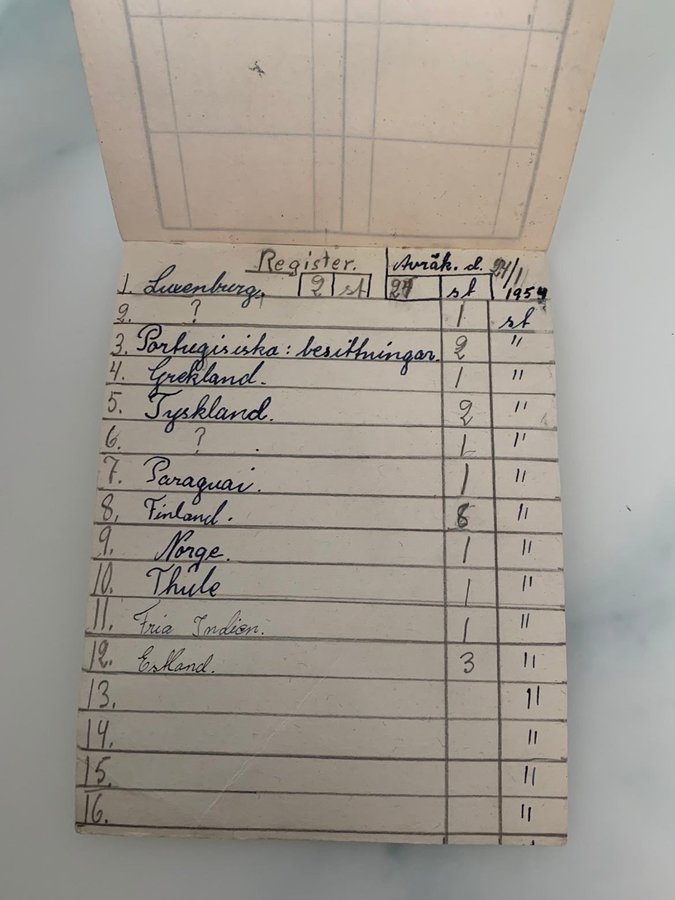 Register. Avräk. d. 24/1
1. Luxenburg. 2 st st 1954
2. ? 1 st
3. Portugisiska: besittningar. 2 "
4. Grekland. 1 "
5. Tyskland. 2 "
6. ? 1 "
7. Paraguai. 1 "
8. Finland. 8 "
9. Norge. 1 "
10. Thule 1 "
11. Fria Indien. 1 "
12. Estland. 3 "
13. "
14. "
15. "
16. "
"